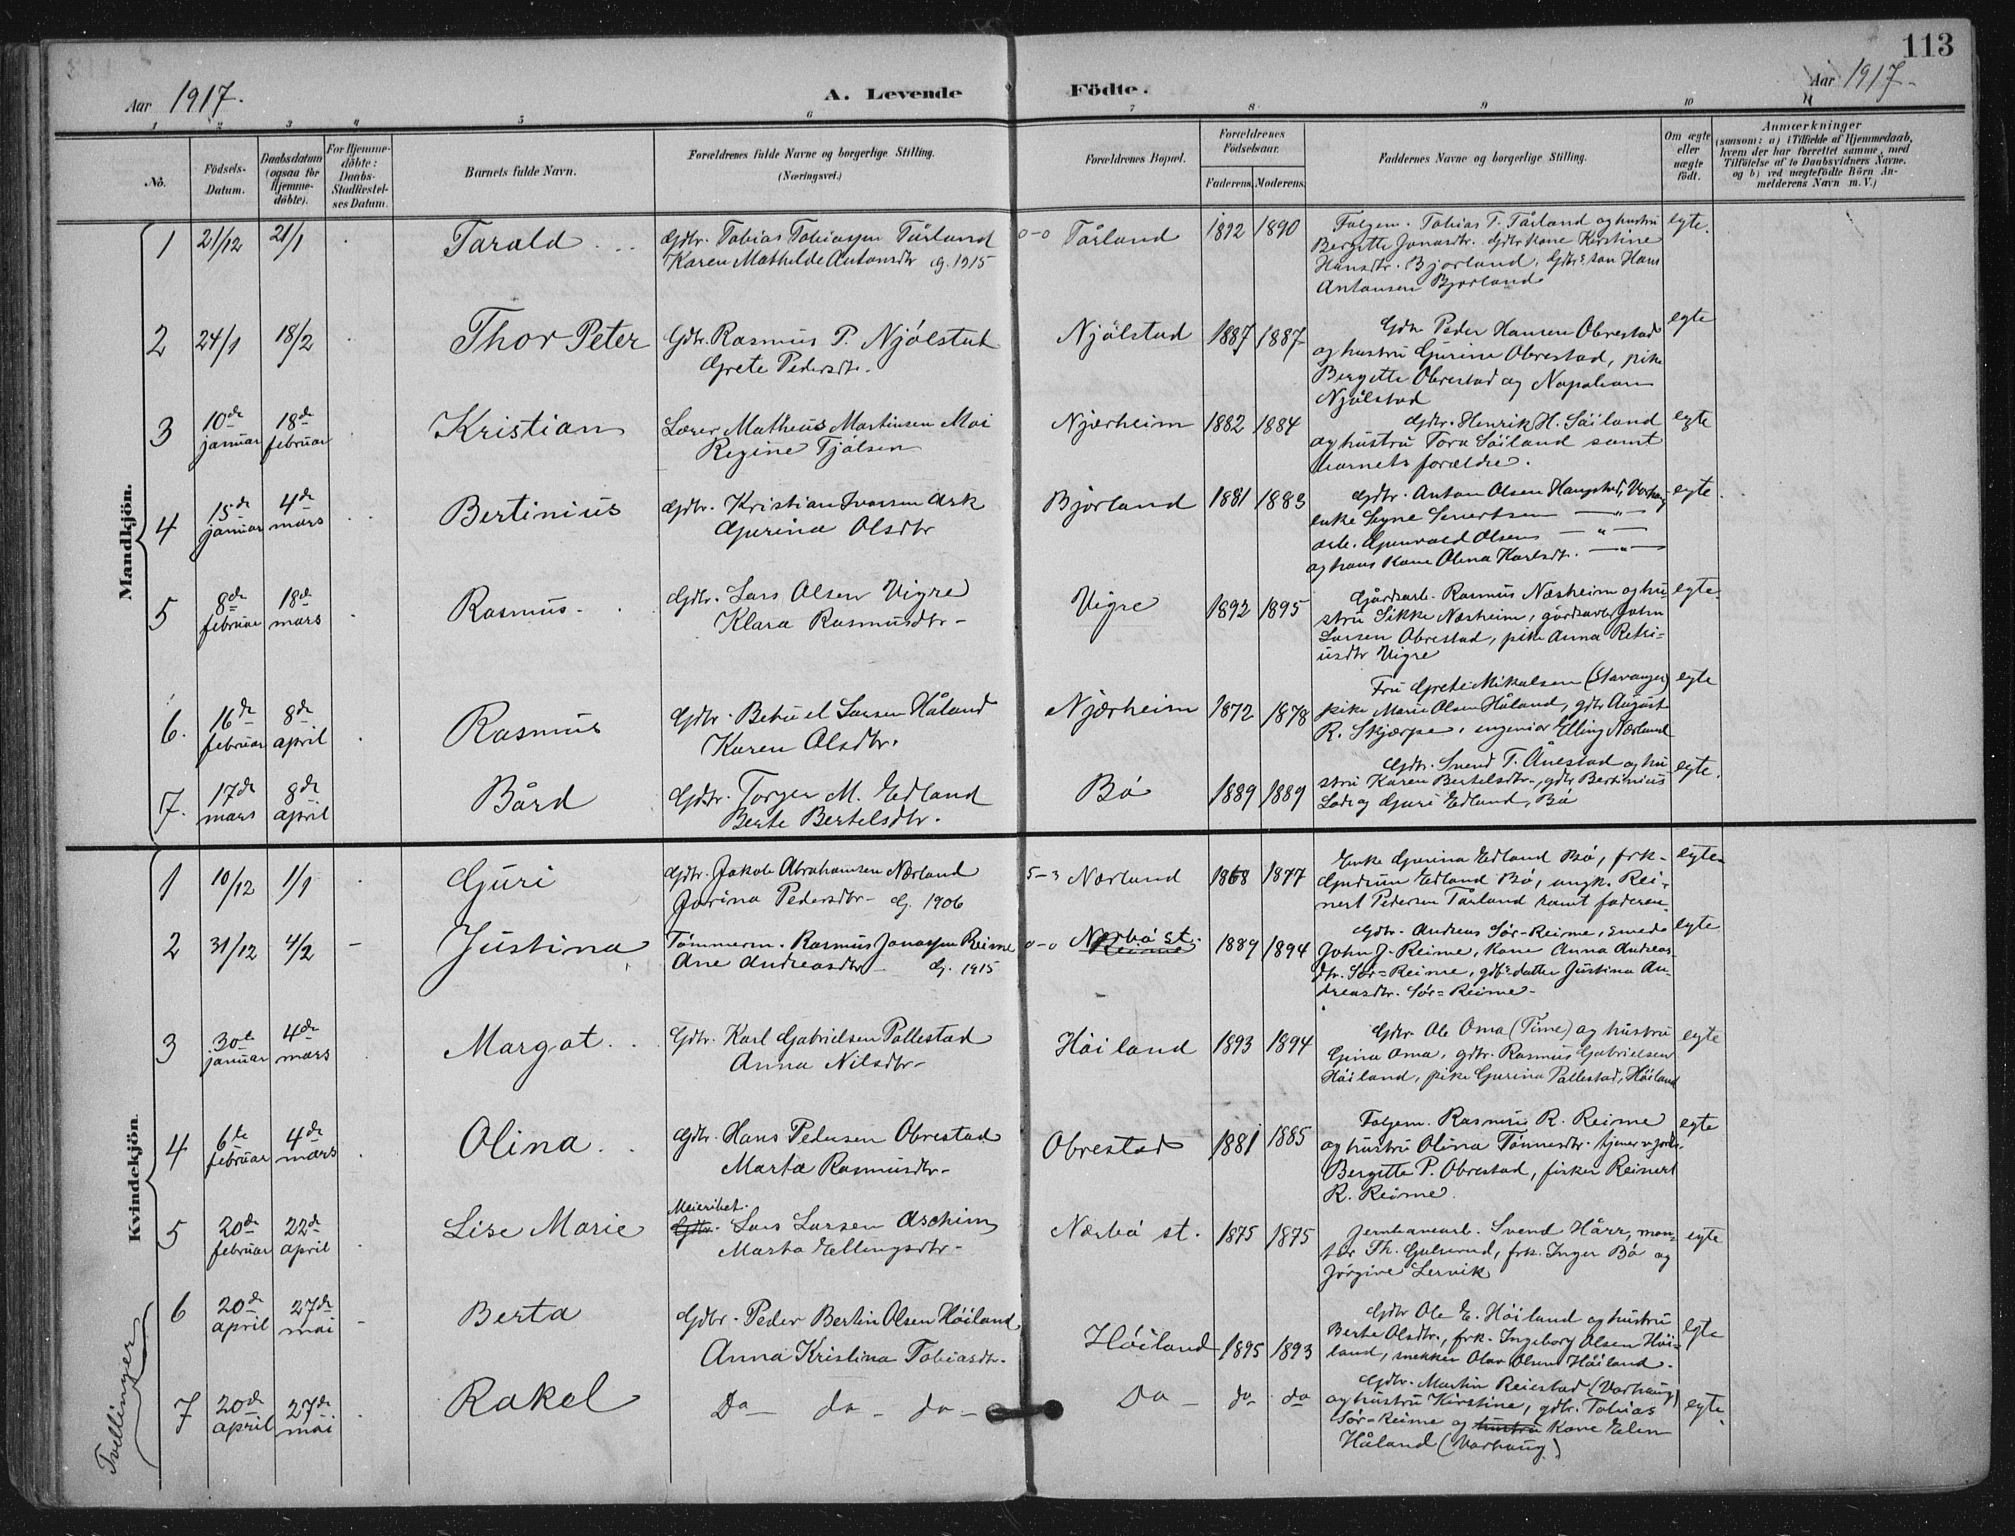 113
Aar 1917.
A. Levende
Födte.
Aar 1917.
1 2 3 4 5 6 7 8 9 10 11
No.
Födsels-
Datum.
Daabsdatum
(ogsaa for
Hjemme-
döbte).
For Hjemme-
döbte:
Daabs-
Stadfæstel-
ses Datum.
Barnets fulde Navn.
Forældrenes fulde Navne og borgerlige Stilling.
(Næringsvei.)
Forældrenes Bopæl.
Forældrenes
Födselsaar.
Faderens. Moderens.
Faddernes Navne og borgerlige Stilling.
Om ægte
eller
uægte
födt.
Anmærkninger
(saasom: a) i Tilfælde af Hjemmedaab,
hvem der har forrettet samme, med
Tilföielse af to Daabsvidners Navne.
og b) ved uægtefödte Börn An-
melderens Navn m. V.)
Mandkjön.
1 21/12 21/1 Tarald Gdbr. Tobias Tobiassen Tårland
Karen Mathilde Antonsdtr g. 1915
0-0 Tårland 1892 1890
Folgem. Tobias T. Tårland og hustru
Bergitte Jonasdtr. Gdbr kone Kirstine
Hansdtr. Bjorland. Gdbrs søn Hans
Antonsen Bjorland
egte.
2 24/1 18/2 Thor Peter Gdbr. Rasmus P. Njølstad
Grete Pedersdtr.
Njølstad 1887 1887
Gdbr Peder Hansen Obrestad
og hustru Gurine Obrestad, pike
Bergitte Obrestad og Napoleon
Njølstad
egte
3 10de januar 18de februar Kristian Lærer Matheus Martinsen Moi
Regine Tjølsen
Njærheim 1882 1884
Gdbr. Henrik H. Søiland
og hustru Tora Søiland samt
barnets forældre.
egte
4 15de januar 4de mars Bertinius Gdbr. Kristian Ivarsen Ark
Gurina Olsdtr
Bjorland 1881 1883
Gdbr. Anton Olsen Haugstad, Varhaug
enke Signe Sivertsen — " —
arb. Gunvald Olsen — " —
og hans kone Olina Karlsdtr. — " —
egte.
5 8de februar 18de mars Rasmus Gdbr. Lars Olsen Vigre
Klara Rasmusdtr
Vigre 1892 1895
Gårdsarb. Rasmus Næsheim og hu
stru Sikke Næsheim, gårdsarb John
Larsen Obrestad, pike Anna
usdtr Vigre
egte.
6. 16de februar 8de april Rasmus Gdbr. Betuel Larsen Håland
Karen Olsdtr.
Njærheim 1872 1878
Fru Grete Mikalsen (Stavanger)
pike Marie Olsen Håland, gdbr August
R. Skjærpe, ingeniør Elling Nærland
egte
7. 17de mars 8de april Bård Gdbr. Torger M. Edland
Berte Bertelsdtr.
Bø 1889 1889
Gdbr. Svend T. Ånestad og hu
stru Karen Bertelsdtr., gdbr Bertinius
Lode og Guri Edland, Bø
egte.
Kvindekjön.
1 10/12 1/1 Guri Gdbr. Jakob Abrahamsen Nærland
Jorina Pedersdtr g. 1906
5-3 Nærland 1868 1877
Enke Gurina Edland Bø, frk.
Gudrun Edland Bø, ungk. Rei-
nert Pedersen Tårland samt faderen.
egte
2 31/12 4/2 Justina Tømmerm. Rasmus Jonassen Reime
Ane Andreasdtr g. 1915
0-0 Nærbø st.
Reime
1889 1894
Gdbr. Andreas Sør-Reime, smed
John J. Reime, kone Anna Andreas
dtr. Sør=Reime, gdbrs datter Justina An-
dreasdtr. Sør=Reime
egte
3 30te januar 4de mars Margot Gdbr. Karl Gabrielsen Pollestad
Anna Nilsdtr
Høiland 1893 1894
Gdbr Ole Oma (Time) og hustru
Gina Oma, gdbr. Rasmus Gabrielsen
Høiland, pike Gurina Pollestad, Høiland
egte
4 6te februar 4de mars Olina Gdbr. Hans Pedersen Obrestad
Marta Rasmusdtr
Obrestad 1881 1885
Folgem. Rasmus R. Reime
og hustru Olina Tønnesdtr.
Bergitte P. Obrestad, fisker Reinert
R. Reime.
egte
5 20de februar 22de april Lise Marie Meieribet.
Gdbr. Lars Larsen Aschim
Marta Ellingsdtr
Nærbø st. 1875 1875
Jernbanearb. Svend Hårr, mon-
tør Th. Gulsrud, frk. Inger Bø og
Jørgine Lervik
egte
Tvillinger
6 20de april 27de mai Berta Gdbr. Peder Bertin Olsen Høiland
Anna Kristina Tobiasdtr.
Høiland 1895 1893
Gdbr Ole E. Høiland og hustru
Berte Olsdtr., frk. Ingeborg Olsen Høi-
land, snekker Olav Olsen Høiland.
egte
7 20de april 27de mai Rakel Do do do
Do do do
Gdbr. Martin Reiestad (Varhaug)
og hustru Kirstine, gdbr. Tobias
Sør=Reime og hustru kone Elen
Håland (Varhaug)
egte.